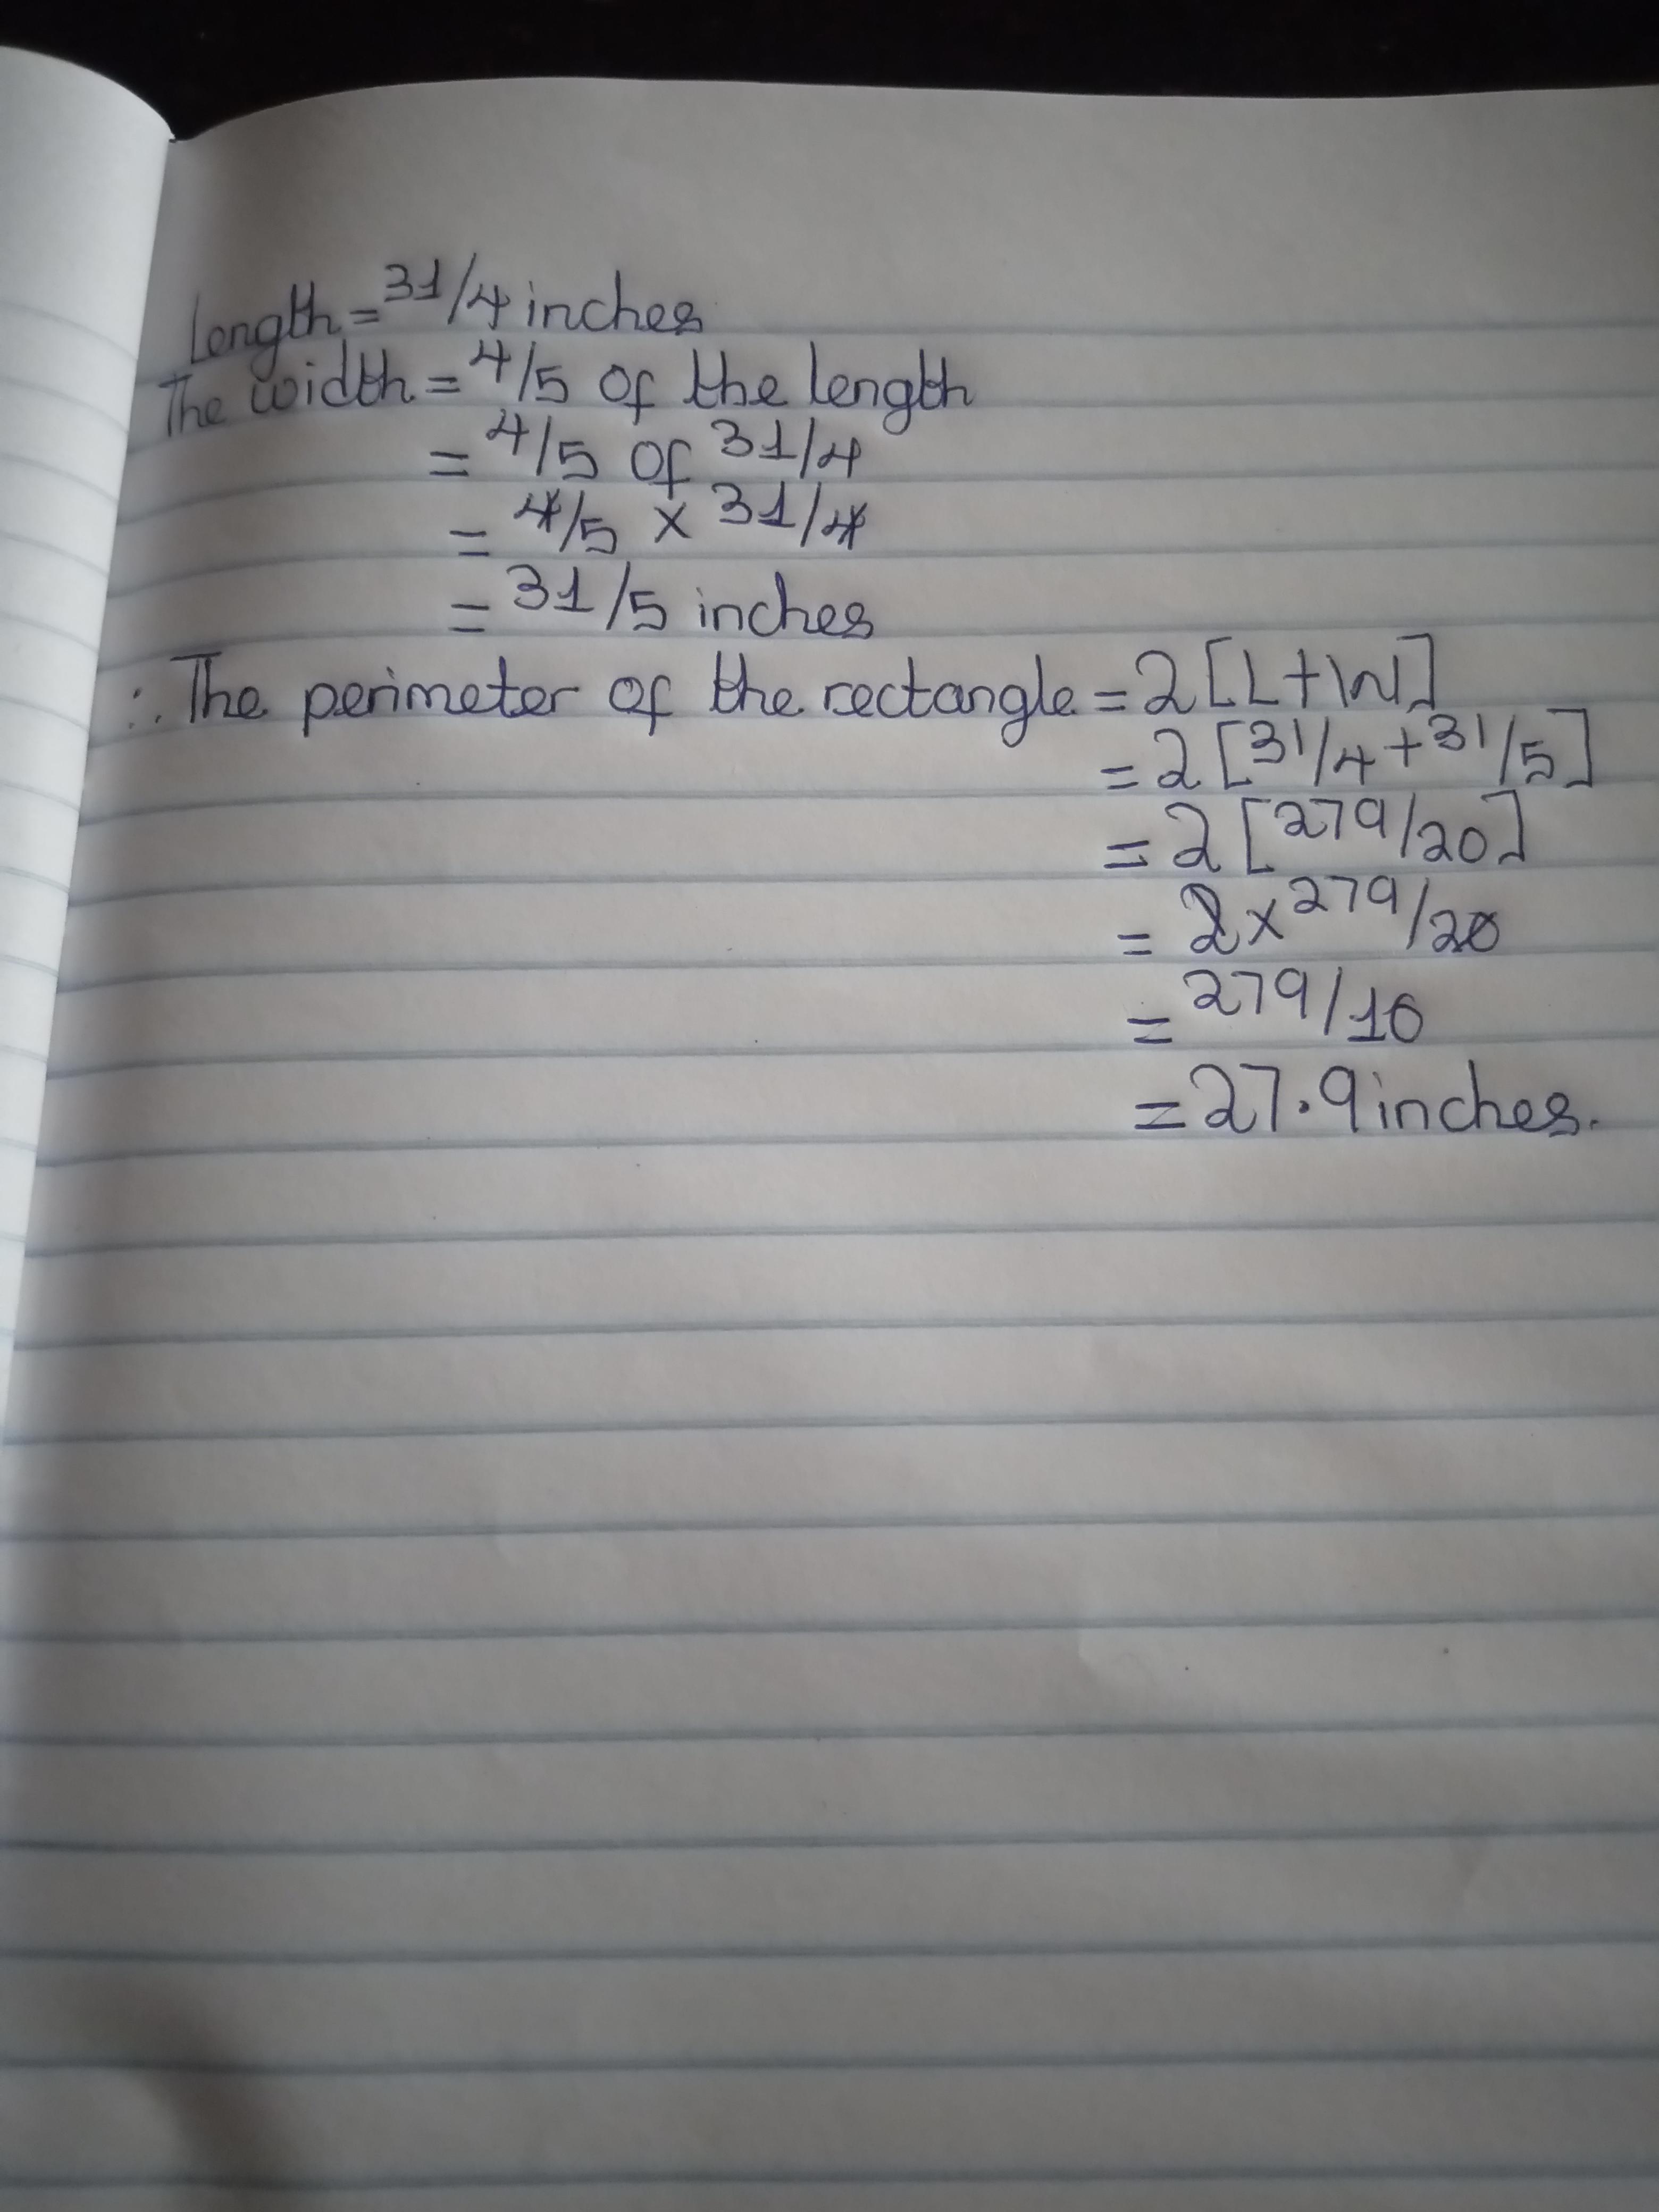 Length = 31/4 inches
The width = 4/5 of the length
= 4/5 of 31/4
= 4/5 × 31/4
= 31/5 inches
∴ The perimeter of the rectangle = 2[L+W]
= 2[31/4 + 31/5]
= 2[279/20]
= 2 × 279/20
= 279/10
= 27.9 inches.